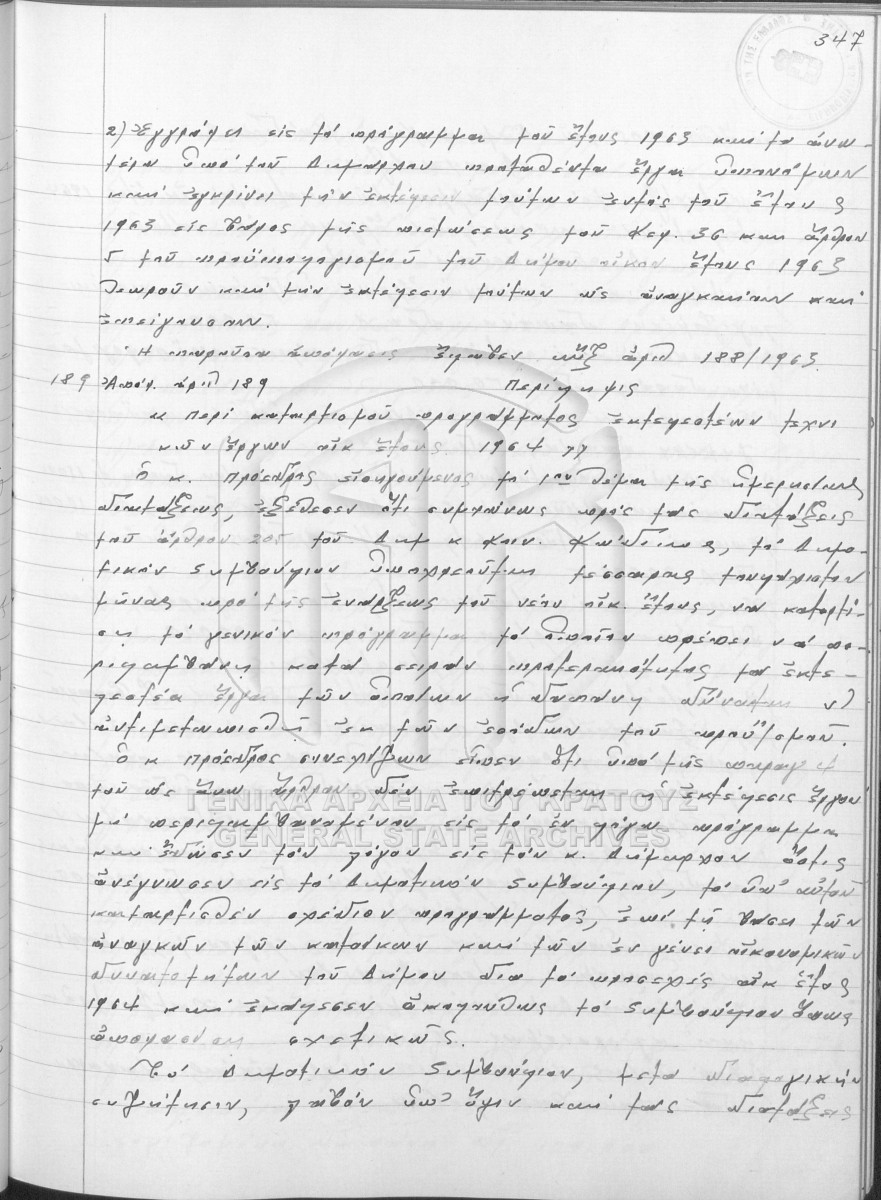 347
2) Ἐγγράφει εἰς τό πρόγραμμα τοῦ ἔτους 1963 καί τα ἀνω-
τέρω ὑπό τοῦ Δημάρχου προταθέντα ἔργα ὑπονόμων
καί ἐγκρίνει τήν ἐκτέλεσιν τούτων ἐντός τοῦ ἔτους
1963 εἰς βάρος τῆς πιστώσεως τοῦ Κεφ. 36 και ἄρθρον
5 τοῦ προϋπολογισμοῦ τοῦ Δήμου οἰκον ἔτους 1963
θεωροῦν καί τήν ἐκτέλεσιν τούτων ὡς ἀναγκαίαν καί
ἐπείγουσαν.
Ἡ παροῦσα ἀπόφασις ἔλαβεν αὔξ ἀριθ 188/1963.
189 Ἀπόφ. ἀριθ 189 Περίληψις
" Περί καταρτισμοῦ προγράμματος ἐκτελεστέων τεχνι
κῶν ἔργων οἰκ ἔτους 1964 "
Ὁ κ. Πρόεδρος εἰσηγούμενος τό 1ον θέμα τῆς ἡμερησίας
διατάξεως, ἐξέθεσεν ὅτι συμφώνως πρός τας διατάξεις
τοῦ ἄρθρου 205 τοῦ Δημ κ Κοιν. Κώδικος, τό Δημο-
τικόν Συμβούλιον ὑποχρεοῦται τέσσαρας τουλάχιστον
μῆνας πρό τῆς ἐνάρξεως τοῦ νέου οἰκ. ἔτους, να καταρτί-
σῃ τό γενικόν πρόγραμμα τό ὁποῖον πρέπει νά πε-
ριλαμβάνῃ κατά σειράν προτεραιότητος τα ἐκτε-
λεστέα ἔργα τῶν ὁποίων ἡ δαπάνη δύναται ν'
ἀντιμετωπισθῇ ἐκ τῶν ἐσόδων τοῦ προϋ/σμοῦ.
Ὁ κ Πρόεδρος συνεχίζων εἶπεν ὅτι ὑπό τῆς παραγ
τοῦ ὡς ἄνω ἄρθρου δέν ἐπιτρέπεται ἡ ἐκτέλεσις ἔργου
μή περιλαμβανομένου εἰς τό ἐν λόγω πρόγραμμα
καί ἔδωσεν τόν λόγον εἰς τόν κ. Δήμαρχον ὅστις
ἀνέγνωσεν εἰς τό Δημοτικόν Συμβούλιον, τό ὑπ' αὐτοῦ
καταρτισθέν σχέδιον προγράμματος, ἐπί τῇ βάσει τῶν
ἀναγκῶν τῶν κατοίκων καί τῶν ἐν γένει οἰκονομικῶν
δυνατοτήτων τοῦ Δήμου δια τό προσεχές οἰκ ἔτος
1964 καί ἐκάλεσεν ἀκολούθως τό Συμβούλιον ὅπως
ἀποφασίσῃ σχετικῶς.
Τό Δημοτικόν Συμβούλιον, μετα διαλογικήν
συζήτησιν, λαβόν ὑπ' ὄψιν καί τας διατάξεις
ΓΕΝΙΚΑ ΑΡΧΕΙΑ ΤΟΥ ΚΡΑΤΟΥΣ
GENERAL STATE ARCHIVES